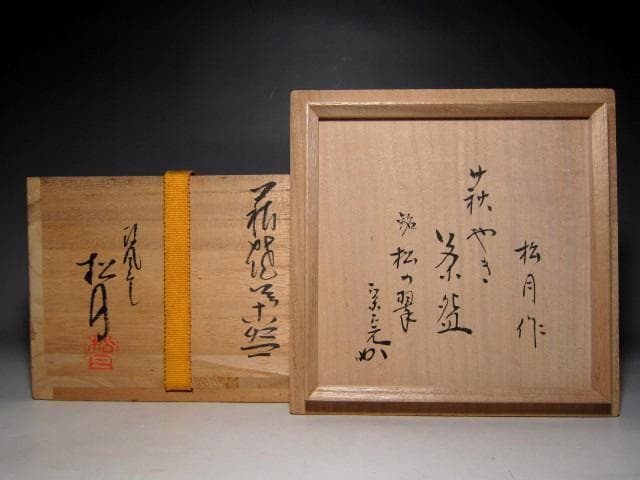 松月作
萩やき
茶盌
銘 松の翠
萩焼茶盌
松月
松月